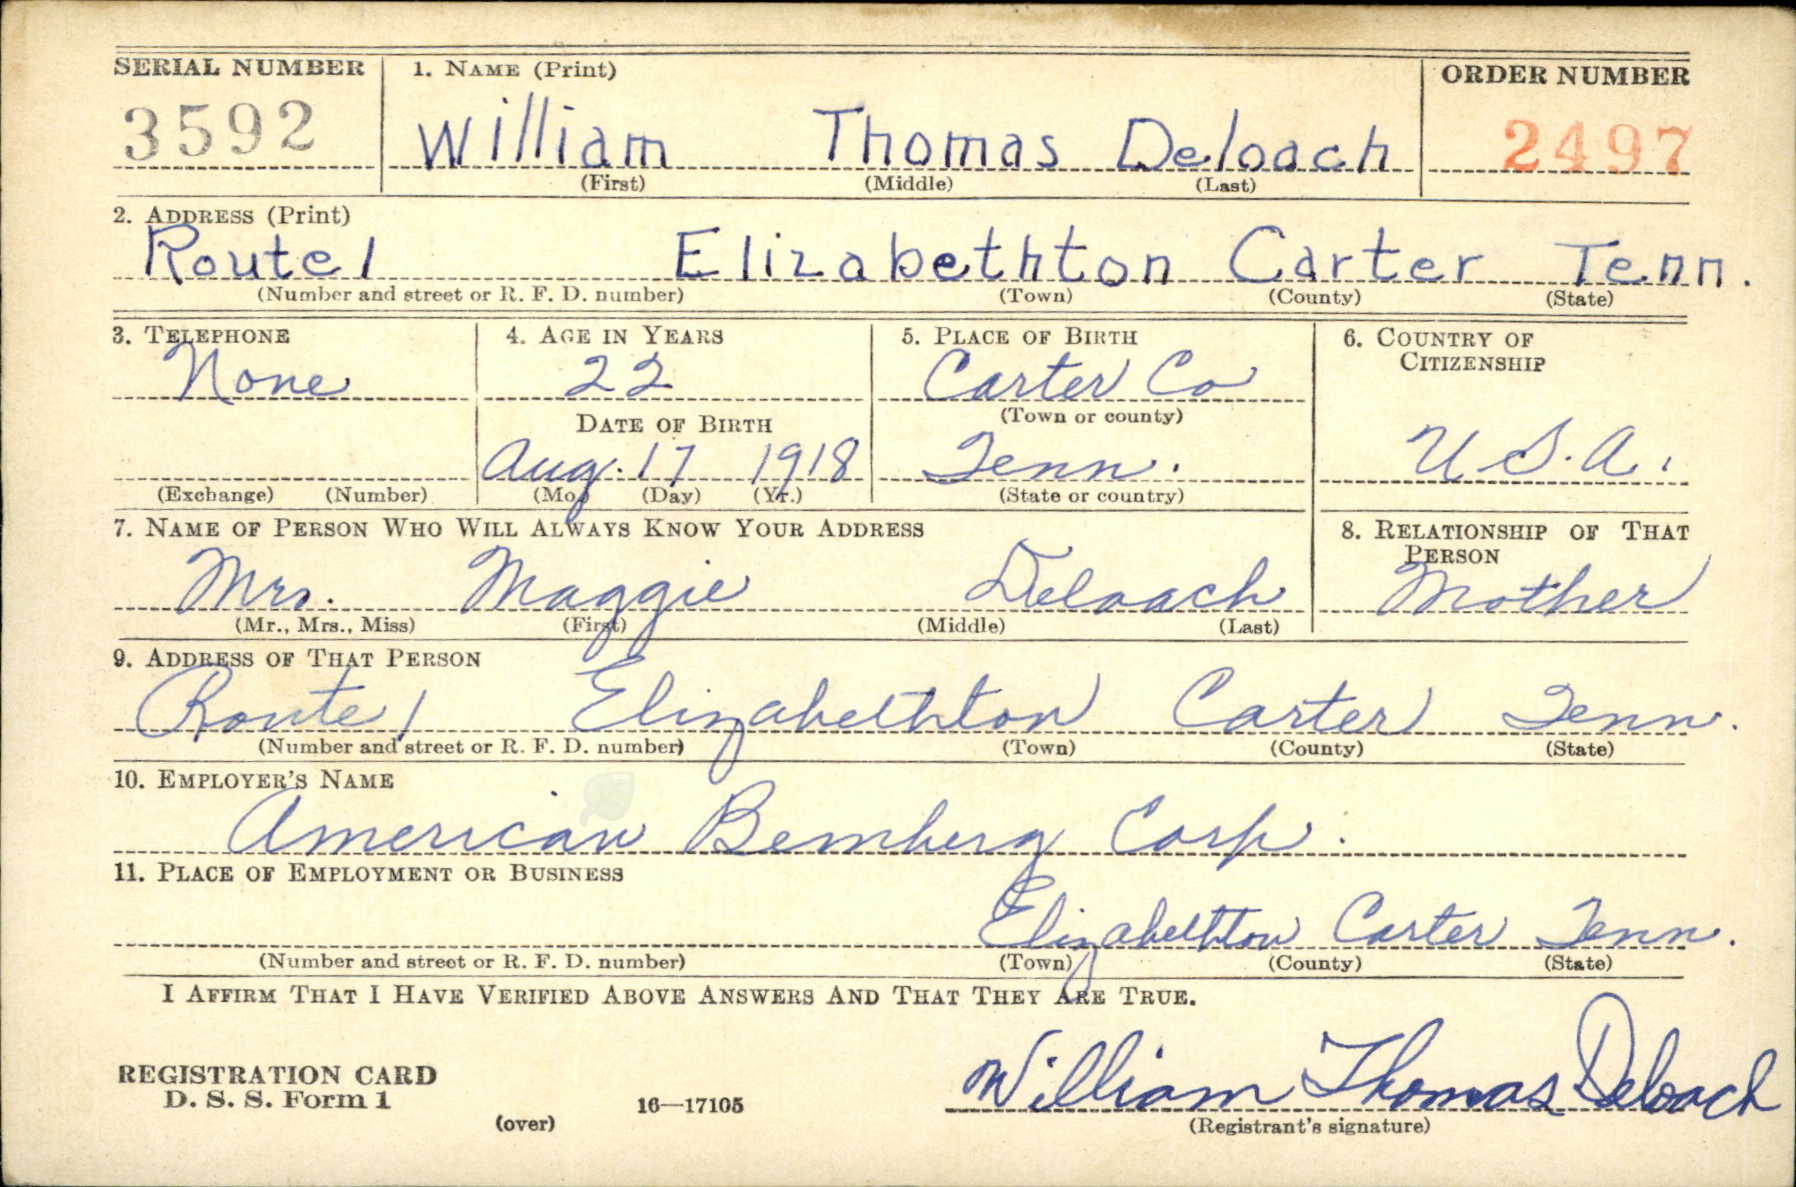 SERIAL NUMBER 1. NAME (Print) ORDER NUMBER
3592 William Thomas Deloach 2497
(First) (Middle) (Last)
2. ADDRESS (Print)
Route 1 Elizabethton Carter Tenn.
(Number and street or R. F. D. number) (Town) (County) (State)
3. TELEPHONE 4. AGE IN YEARS 5. PLACE OF BIRTH 6. COUNTRY OF
CITIZENSHIP
None 22 Carter Co
DATE OF BIRTH (Town or county)
Aug. 17 1918 Tenn. U.S.A.
(Exchange) (Number) (Mo.) (Day) (Yr.) (State or country)
7. NAME OF PERSON WHO WILL ALWAYS KNOW YOUR ADDRESS 8. RELATIONSHIP OF THAT
PERSON
Mrs. Maggie Deloach Mother
(Mr., Mrs., Miss) (First) (Middle) (Last)
9. ADDRESS OF THAT PERSON
Route 1 Elizabethton Carter Tenn.
(Number and street or R. F. D. number) (Town) (County) (State)
10. EMPLOYER'S NAME
American Bemberg Corp.
11. PLACE OF EMPLOYMENT OR BUSINESS
Elizabethton Carter Tenn.
(Number and street or R. F. D. number) (Town) (County) (State)
I AFFIRM THAT I HAVE VERIFIED ABOVE ANSWERS AND THAT THEY ARE TRUE.
REGISTRATION CARD
D. S. S. Form 1 16—17105 William Thomas Deloach
(over) (Registrant's signature)